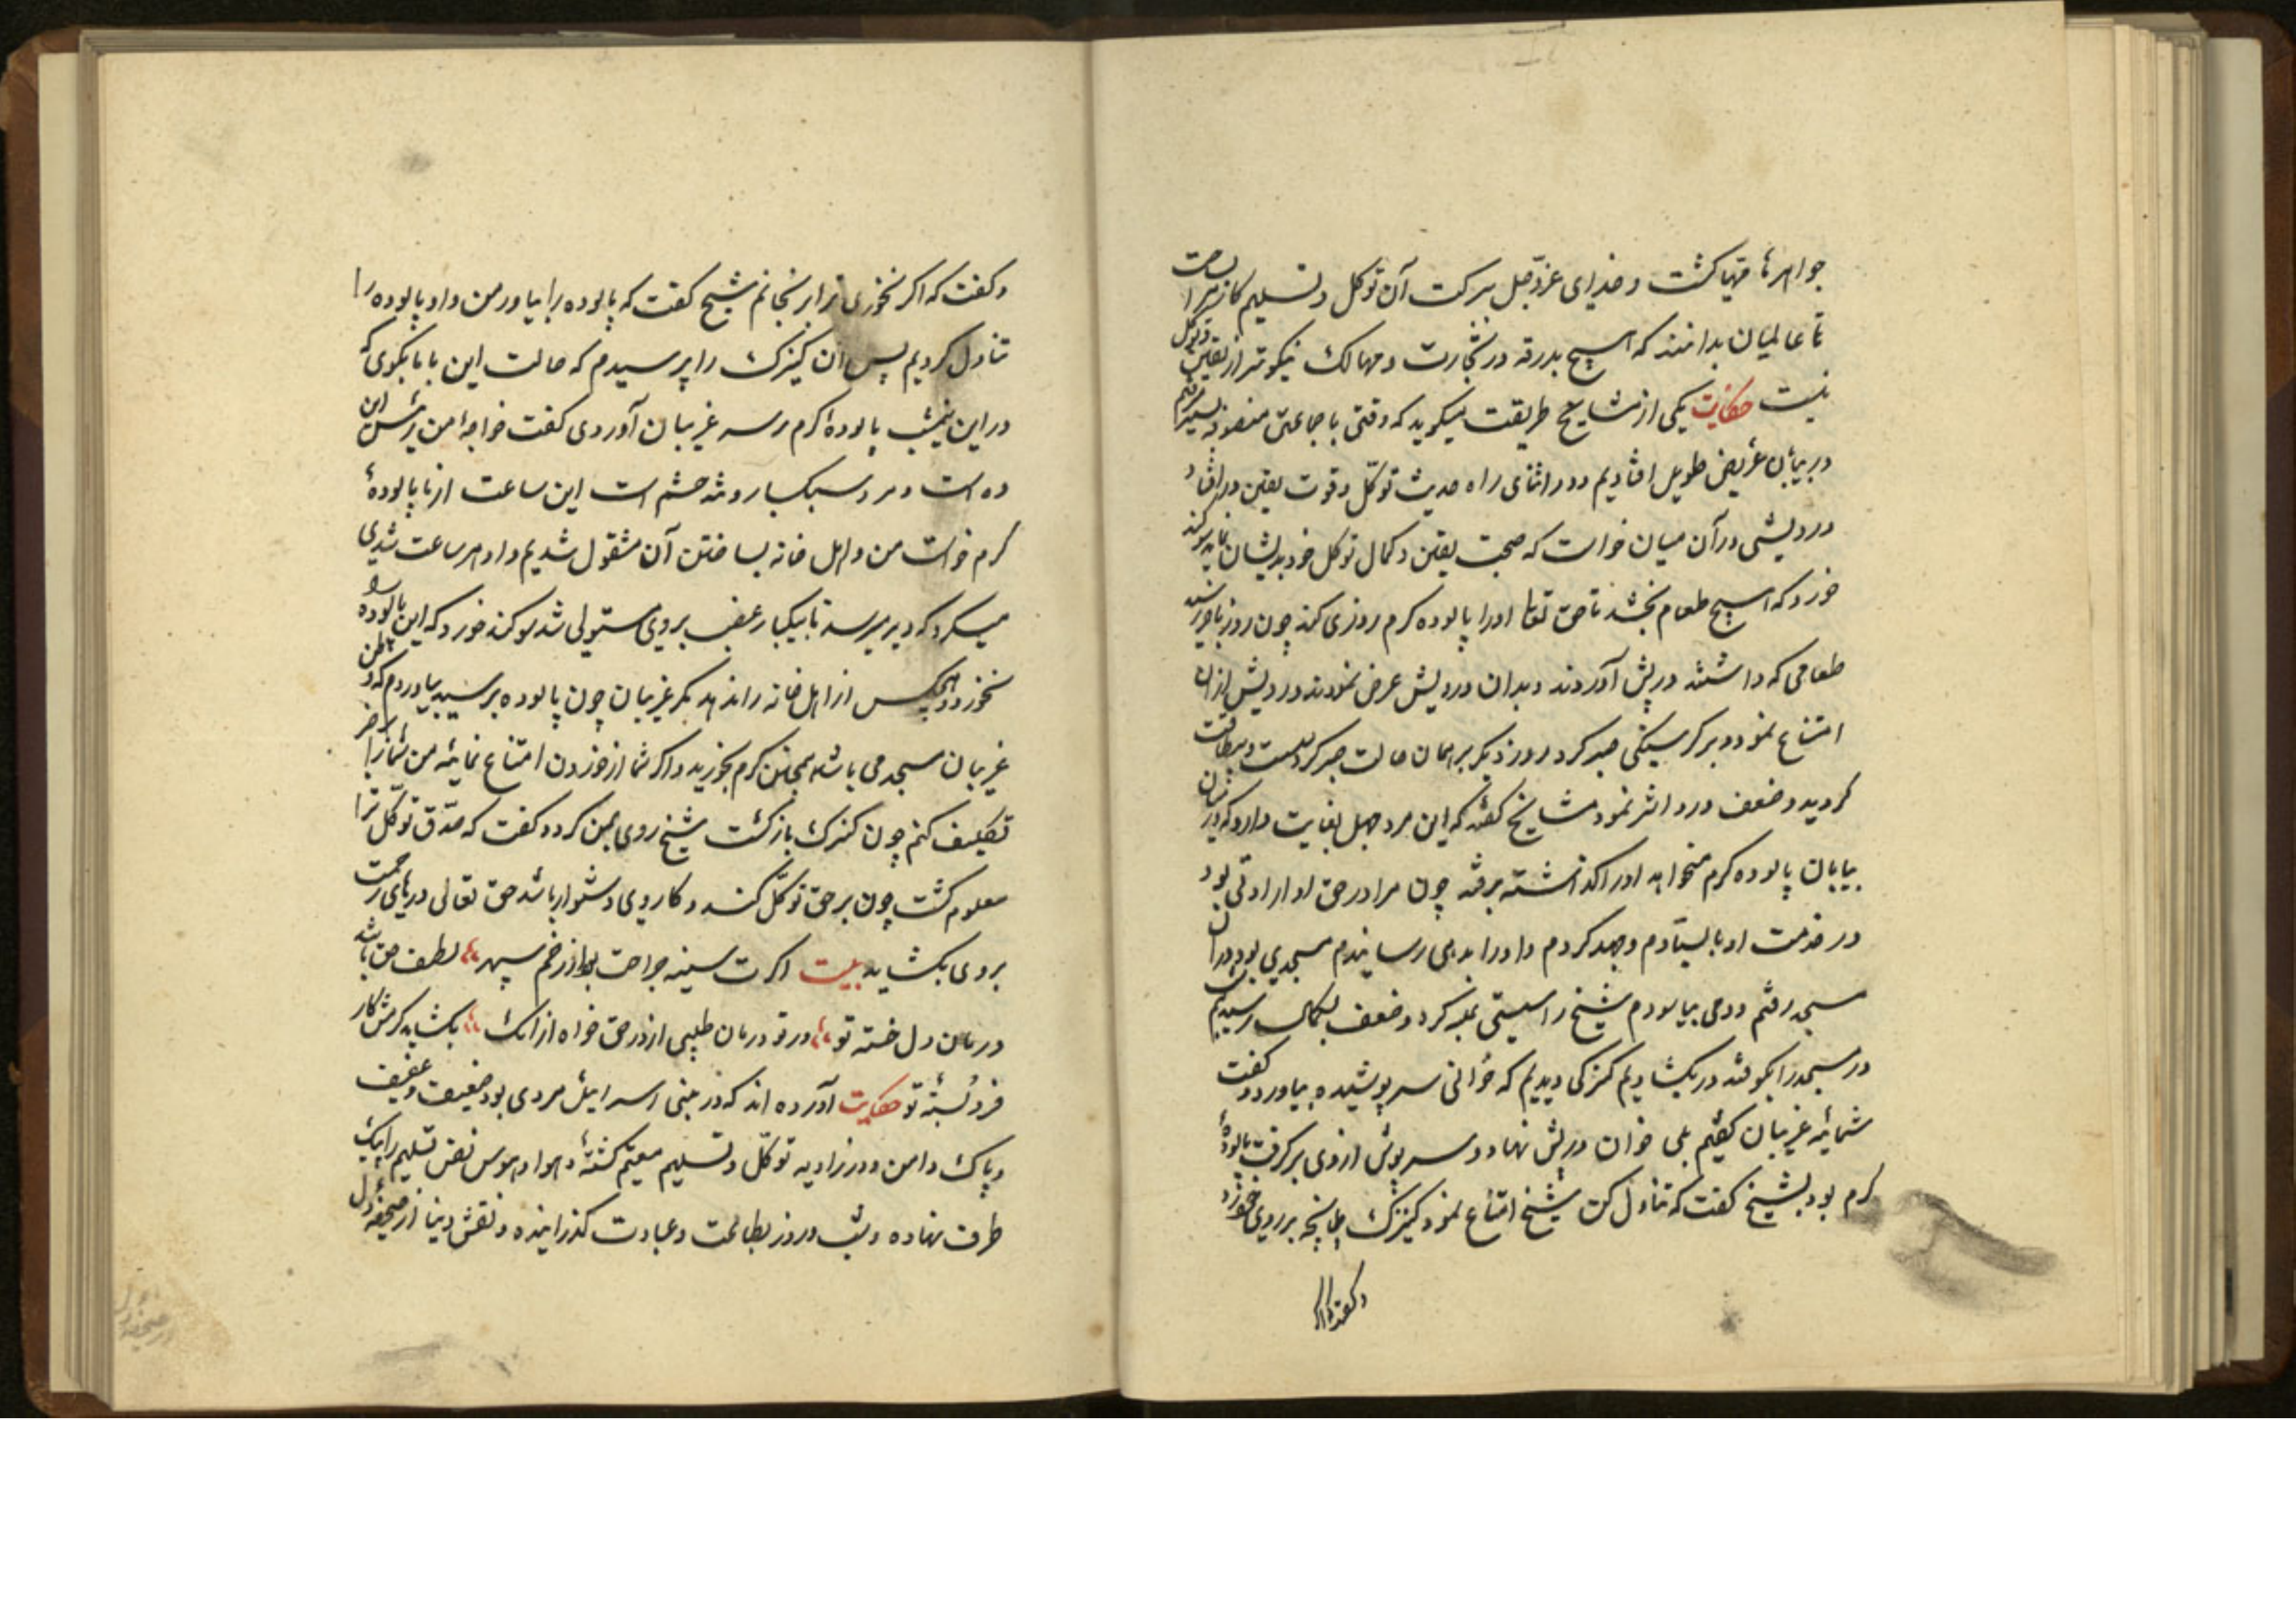 جواهرها مهیا کشت و خدای عزوجل ببرکت آن توکل و تسلیم کار مرا ساخت
تا عالمیان بدانند که هیچ بدرقه در تجارت و مهالک نیکوتر از یقین و توکل
نیست حکایت یکی از مشایخ طریقت میکوید که وقتی با جماعتی متصوفه
در بیابان عریض طویل افتادیم و در اثنای راه حدیث توکل و قوت یقین در افتاد
درویشی در آن میان خواست که صحت یقین و کمال توکل خود بدیشان نماید سوکند
خورد که هیچ طعام نخشد تا حق تعا اورا پالوده کرم روزی کند چون روز باخر رسید
طعامی که داشتند در پیش آوردند و بدان درویش عرض نمودند درویش از ان
امتناع نمود و بر کرسنکی صبر کرد روز دیکر بر همان حالت صبر کرد سست و بیطاقت
کردید و ضعف درو اثر نمود مشایخ کفتند که این مرد جهل بغایت دارد که در
بیابان پالوده کرم میخواهد اورا کذاشته برفتند چون مرا در حق او ارادتی بود
در خدمت او بایستادم و جهد کردم و اورا بدهی رسانیدم مسجدی بود در ان
مسجد رفتم و دمی بیاسودم شیخ را سستی غلبه کرد و ضعف بکمال رسید
در مسجد را بکوفتند در بکشادیم کنیزکی دیدیم که خوانی سر پوشیده بیاورد و کفت
شمائید غریبان کفتیم بلی خوان در پیش نهاد و سرپوش از وی برکرفت پالودهٔ
کرم بود بشیخ کفت که تناول کن شیخ امتناع نمود کنیزک طپانچه بر روی خود زد
و کفت که اکر
و کفت که اکر نخوری ترا برنجانم شیخ کفت که پالوده را بیاور من و او پالوده را
تناول کردیم پس آن کنیزک را پرسیدم که حالت این با ما بکوی که
در این نیمشب پالودهٔ کرم بر سر غریبان آوردی کفت خواجهٔ من رئیس این
ده است و مرد سبکسار و تند خشم است این ساعت از ما پالودهٔ
کرم خواست من و اهل خانه بساختن آن مشغول شدیم و او هر ساعت تندی
میکرد که دیر میرسد تا بیکبار غضب بر وی مستولی شد سوکند خورد که این پالوده را
نخورد و هیچکس از اهل خانه را ندهد مکر غریبان چون پالوده برسید بیاوردم که
غریبان مسجد می باشند همچنین کرم بخورید و اکر شما از خوردن امتناع نمائید من شما را
تکلیف کنم چون کنیزک بازکشت شیخ روی بمن کرد و کفت که صدق توکل ترا
معلوم کشت چون بر حق توکل کند و کار وی دشوار باشد حق تعالی درهای رحمت
بر وی بکشاید بیت اکرت سینه جراحت بود از زخم سپهر لطف حق باشد
درمان دل خسته تو ور تو درمان طلبی از در حق خواه از انک بکشاید کرمش کار
فرو بستهٔ تو حکایت آورده اند که در بنی اسرائیل مردی بود ضعیف و عفیف
و پاک دامن و در زاویه توکل و تسلیم مقیم کشته و هوا و هوس نفس تسلیم را بیک
طرف نهاده و شب و روز بطاعت و عبادت کذرانیده و نقش دنیا از صحیفه دل